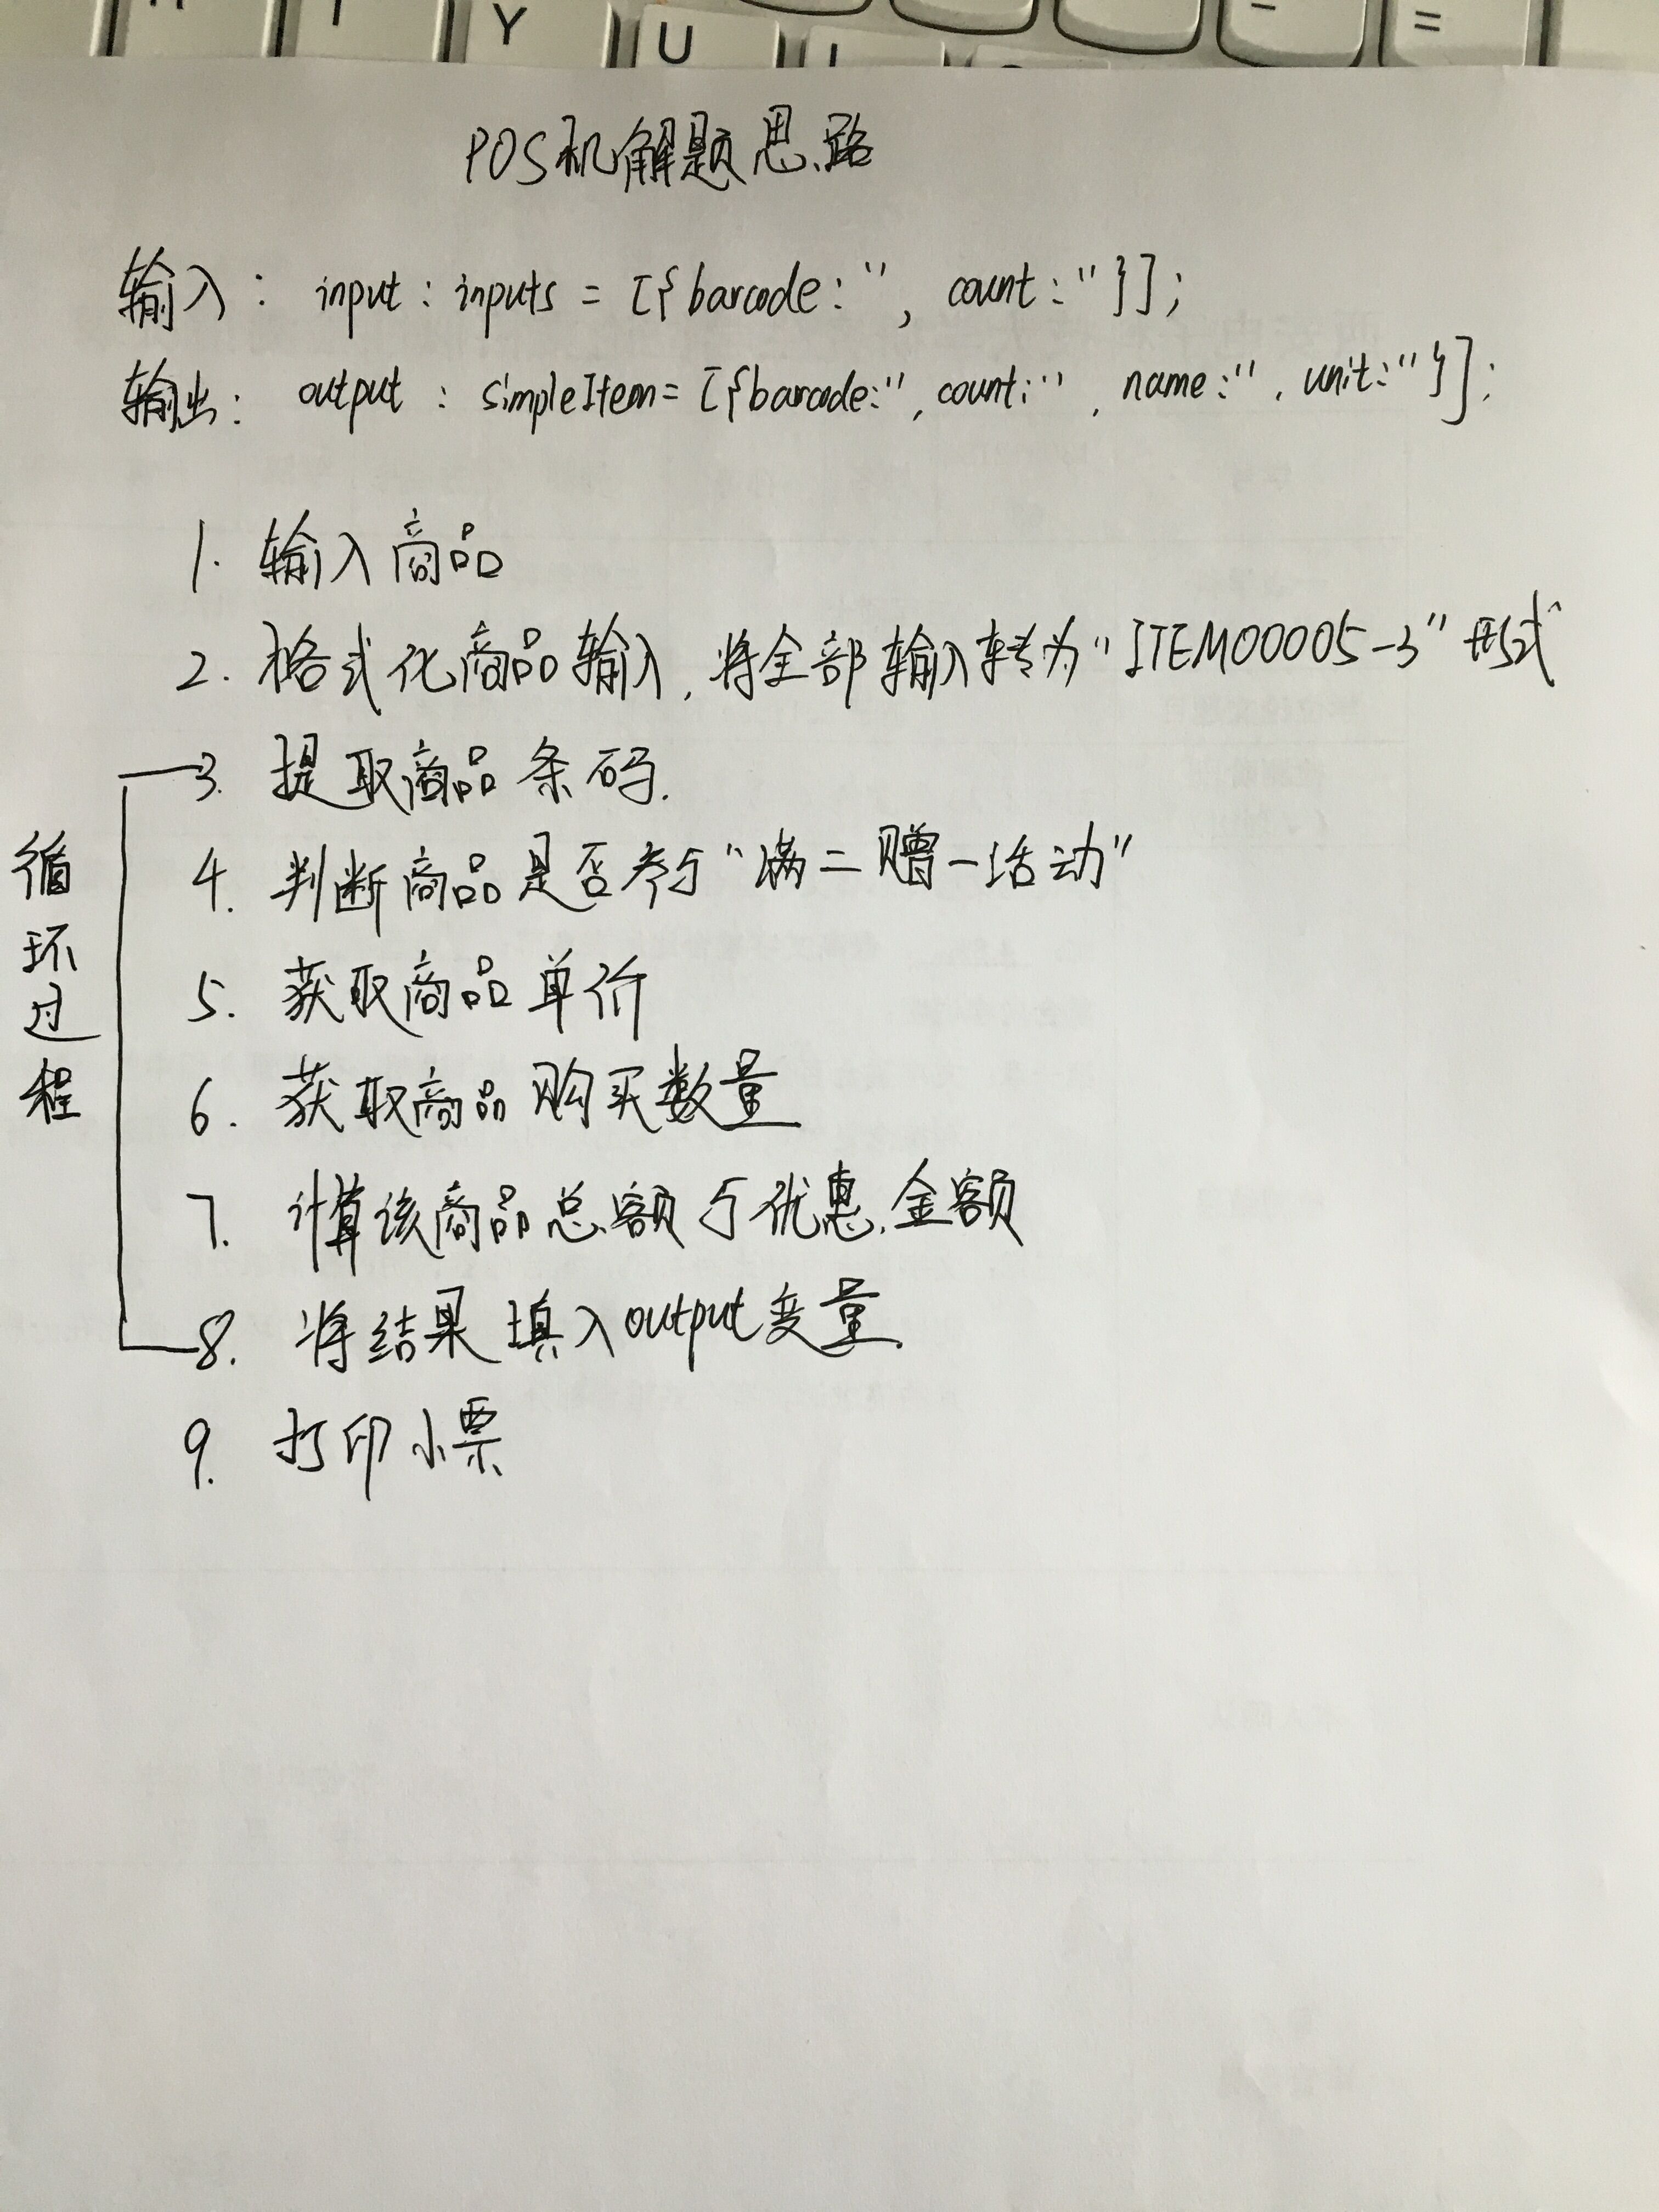 Y U - =
POS机解题思路
输入: input: inputs = [{barcode:'', count:''}];
输出: output: simpleItem= [{barcode:'', count:'', name:'', unit:''}];
1. 输入商品
2. 格式化商品输入, 将全部输入转为"ITEM00005-3"形式
3. 提取商品条码.
4. 判断商品是否参与"满二赠一活动"
5. 获取商品单价
6. 获取商品购买数量
7. 计算该商品总额与优惠金额
8. 将结果填入output变量.
9. 打印小票
循环过程